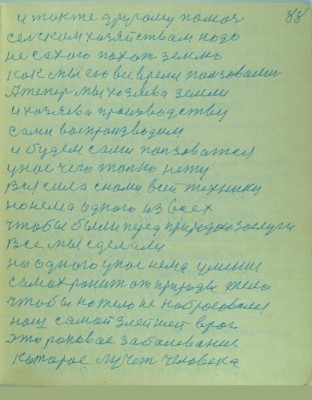 88
и также другому помоч
сельском хозяйствам надо
не сахого пахат землю
как мы его все время ползовались
А теперь мы хозяева земли
и хозяева производству
сами воспроизводим
и будем сами ползоватся
унас чего толко нету
вся сила снами всей техники
но нема одного из всех
чтобы были перед природою заслуги
все мы сделали
но одного унас нема умение
самохранит от природы тело
чтобы на тело не набросовался
наш самой злейшей враг
это роковае заболевание
которое мучет человека